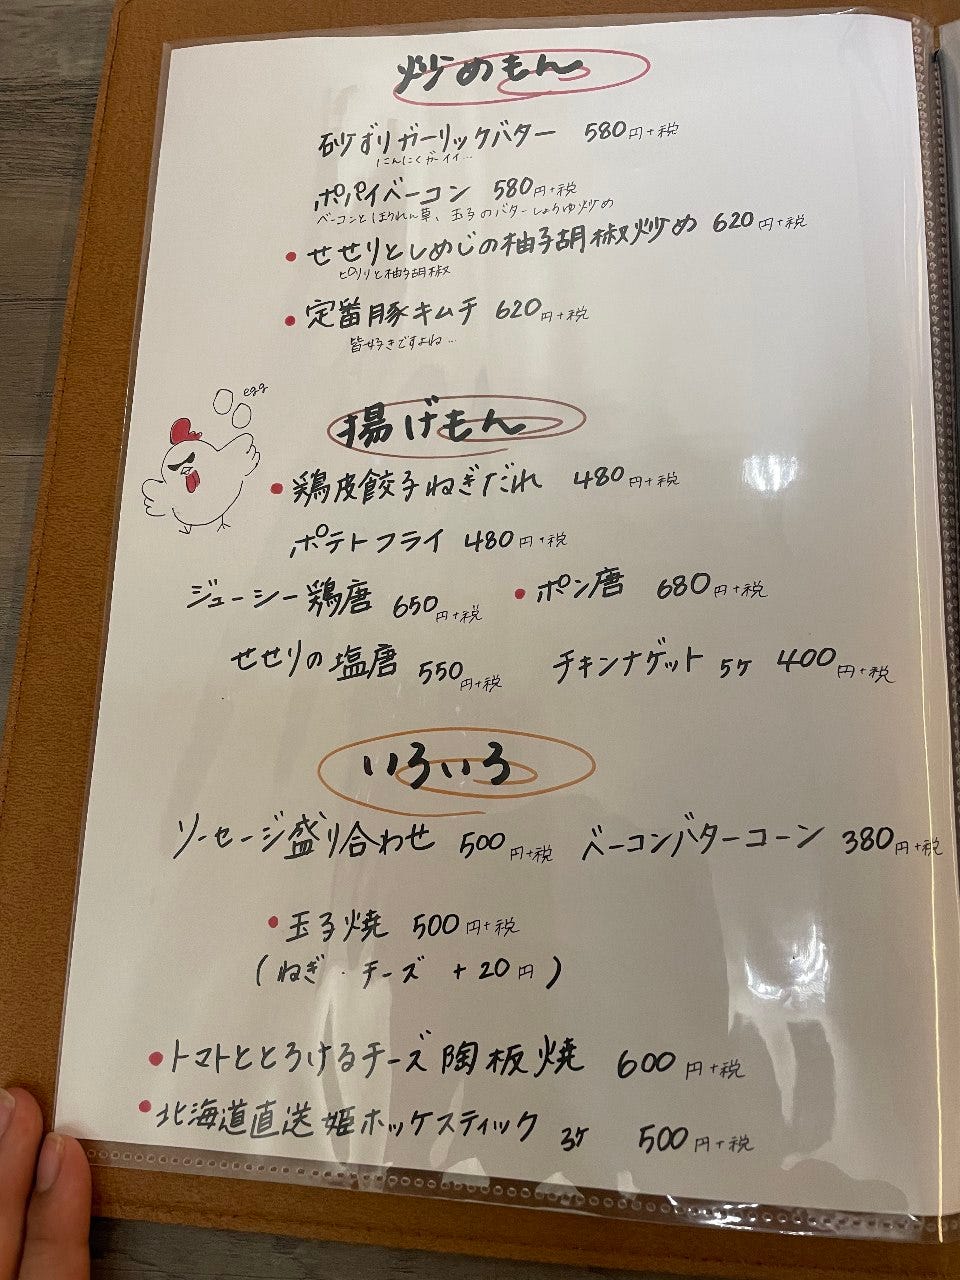 炒めもん
砂ずりガーリックバター 580円+税
にんにくがイイ…
ポパイベーコン 580円+税
ベーコンとほうれん草、玉子のバターしょうゆ炒め
• せせりとしめじの柚子胡椒炒め 620円+税
ピリリと柚子胡椒
• 定番豚キムチ 620円+税
皆好きですよね…
egg
揚げもん
• 鶏皮餃子ねぎだれ 480円+税
ポテトフライ 480円+税
ジューシー鶏唐 650円+税 • ポン唐 680円+税
せせりの塩唐 550円+税 チキンナゲット 5ケ 400円+税
いろいろ
ソーセージ盛り合わせ 500円+税 ベーコンバターコーン 380円+税
• 玉子焼 500円+税
(ねぎ・チーズ +20円)
• トマトととろけるチーズ陶板焼 600円+税
• 北海道直送姫ホッケスティック 3ケ 500円+税